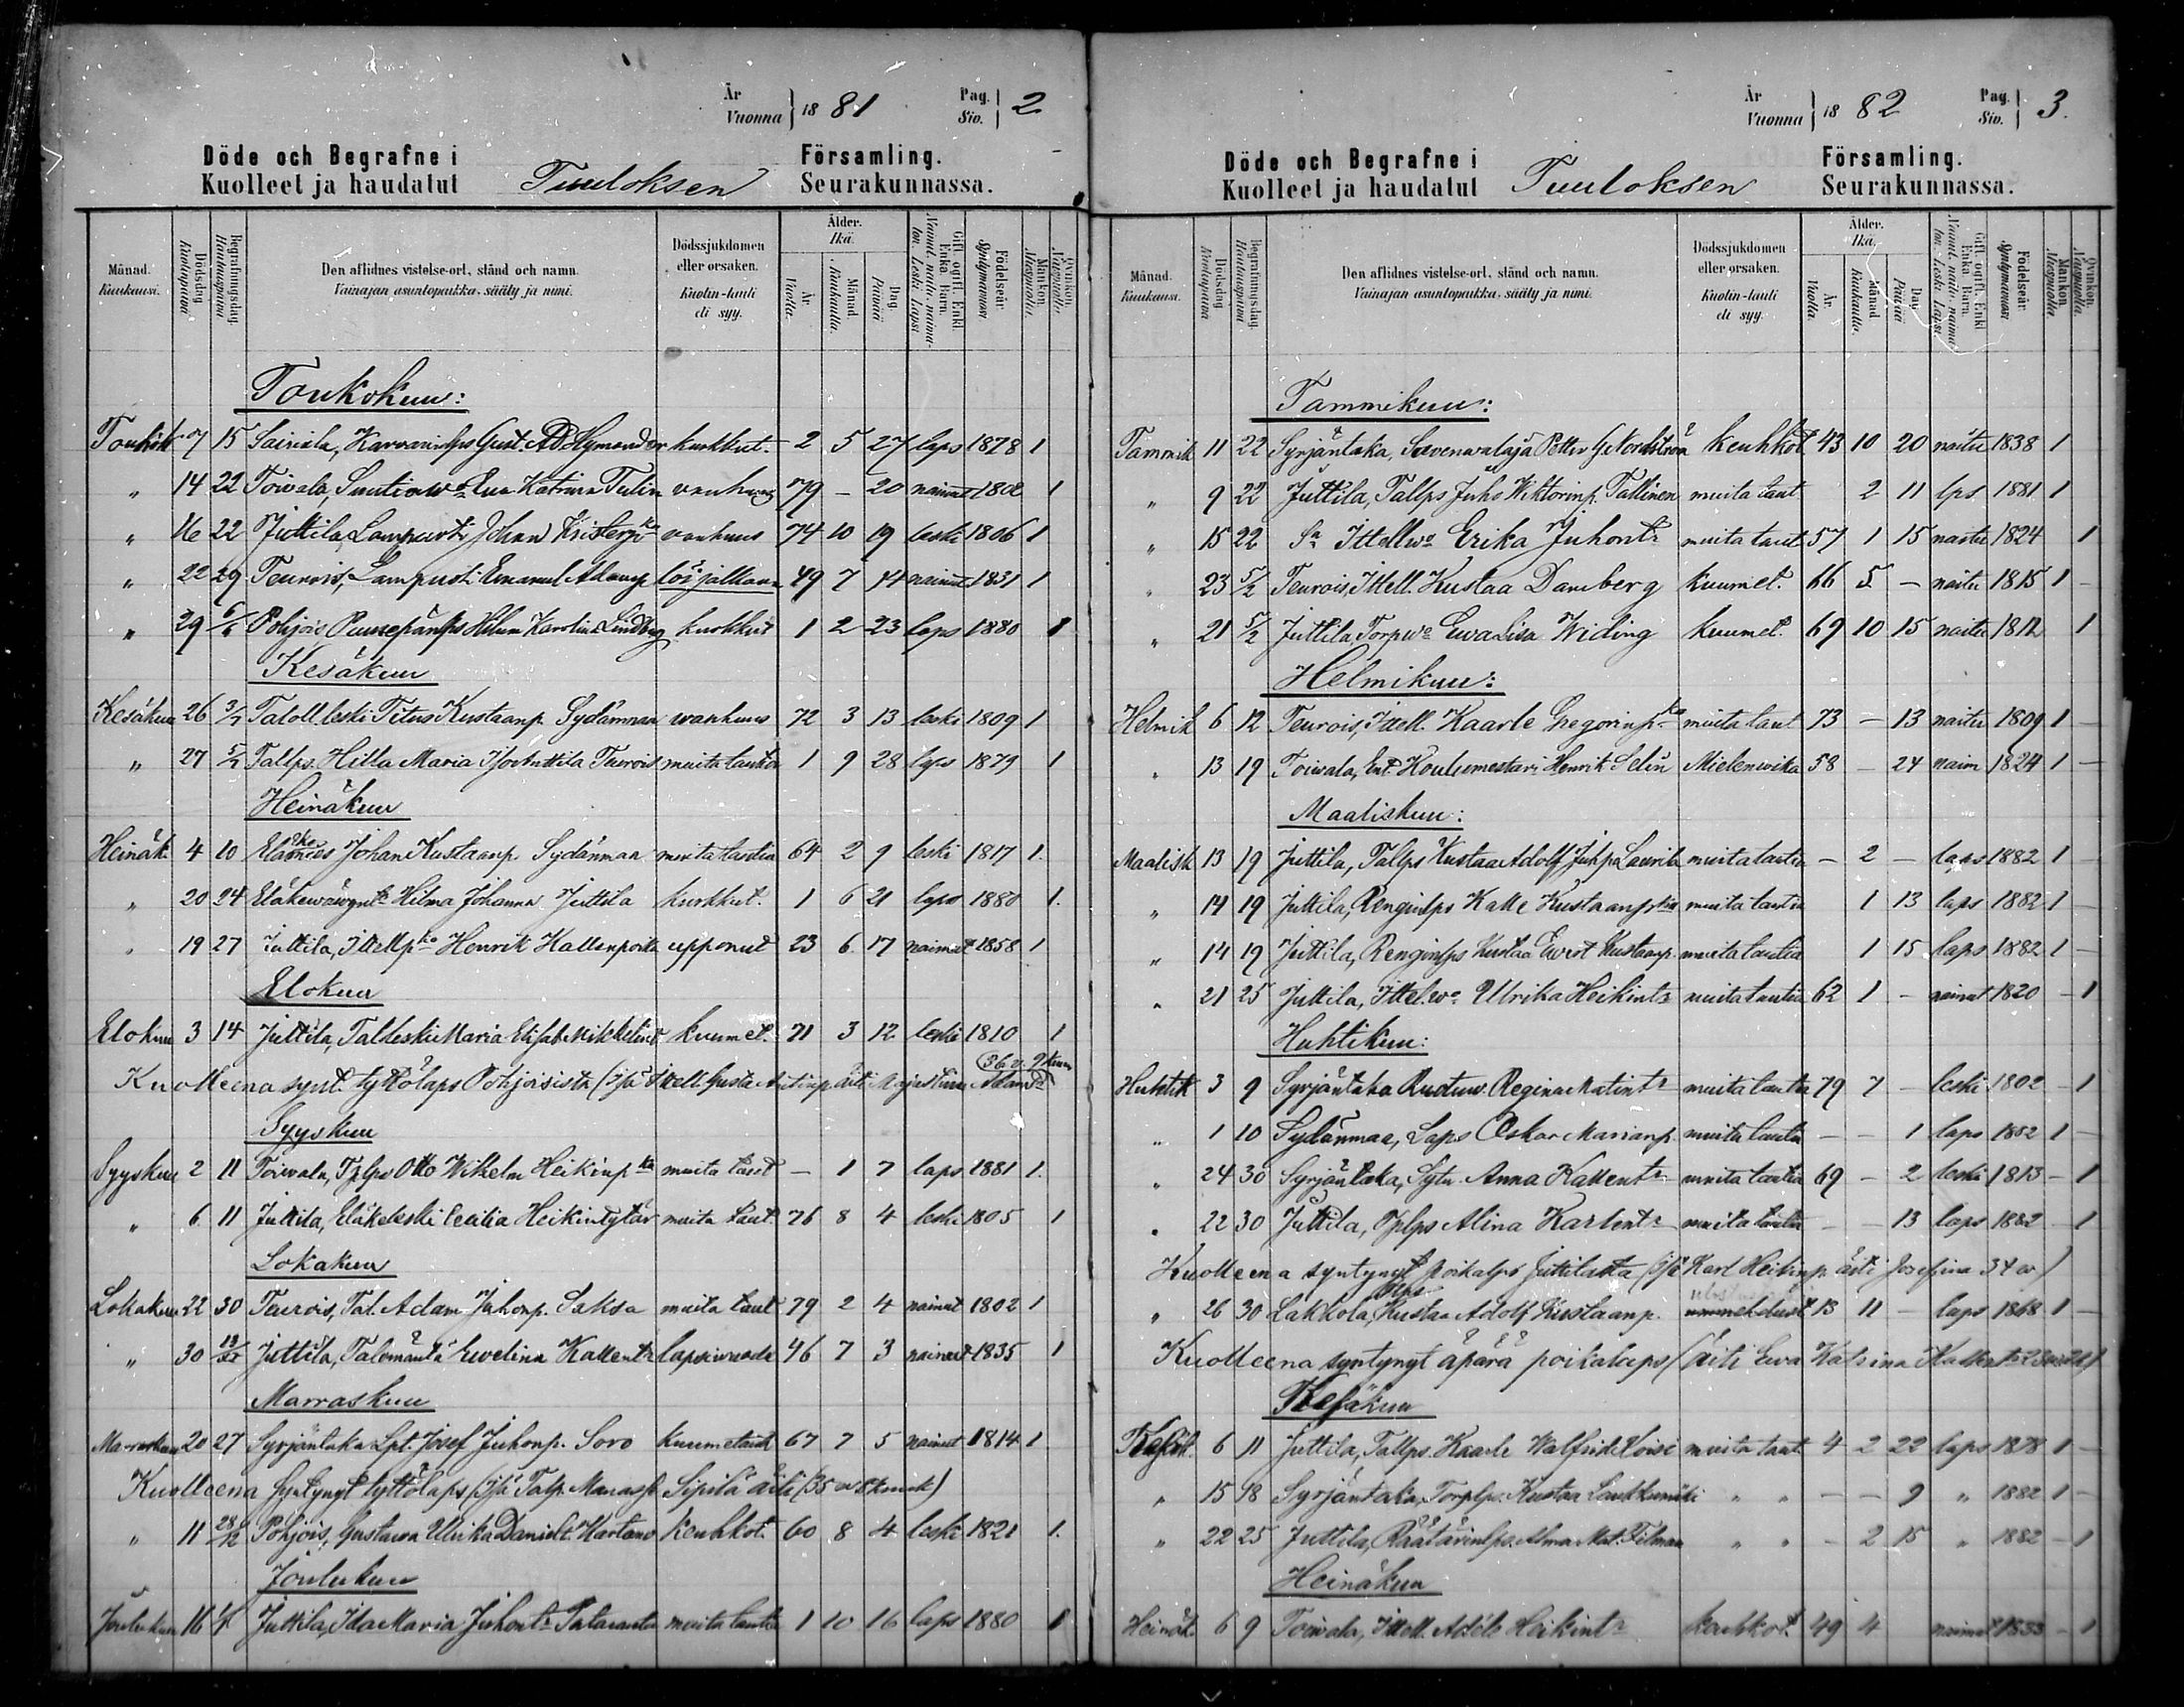 År Vuonna 18 81 Pag. Siv. 2
Döde och Begrafne i Församling.
Kuolleet ja haudatut Tuuloksen Seurakunnassa.
Månad. Kuukausi. Dödsdag Kuolinpäivä Begrafningsdag Hautauspäivä Den aflidnes vistelse-ort, stånd och namn. Vainajan asuntopaikka, sääty ja nimi. Dödssjukdomen eller orsaken. Kuolin-tauti eli syy. Ålder. Ikä. År Vuotta. Månad. Kuukautta. Dag. Päivää Gift, ogift, Enkl. Enka. Barn. Nainut, naitu, naimaton. Leski. Lapsi. Födelseår. Syntymävuosi Mankön. Miespuolia. Qvinkön. Naispuolia.
Toukokuu:
Toukok 7 15 Sairiala, Gust. kurkkut. 2 5 27 laps 1878 1
" 14 22 Toivala, Eva Katrina Tulin vanhuus 79 - 20 nainut 1802 1
" 16 22 Juttila, Lampuoti Johan vanhuus 74 10 19 leski 1806 1
" 22 29 Teurois, Lampuoti Emanuel Adamp. 49 7 14 nainut 1831 1
" 29 6/6 Pohjois Puusepänlps Hilma Karolina Lindberg kurkkut 1 2 23 laps 1880 1
Kesäkuu
Kesäkuu 26 3/7 Taloll. leski Titus Kustaanp. Sydänmaa wanhuus 72 3 13 leski 1809 1
" 27 5/7 Tallps. Hilla Maria Teurois muita tautia 1 9 28 laps 1879 1
Heinäkuu
Heinäk. 4 10 Eläkemies Johan Kustaanp. Sydänmaa muita tautia 64 2 9 leski 1817 1.
" 20 24 Hilma Johanna Juttila kurkkut. 1 6 21 laps 1880 1.
" 19 27 Juttila, Ittellp. Henrik Kallenpoika upponut 23 6 17 naimat 1858 1
Elokuu
Elokuu 3 14 Juttila, Talleski Maria Elisab. Mikkelint. kuumet. 71 3 12 leski 1810 1
36 v. 9 kuu
Kuolleena synt. tyttölaps Pohjoisista (isä Ittell. Gusta Antinp. äiti Adamtr
Syyskuu
Syyskuu 2 11 Toiwala, Tplps Otto Wilhelm Heikinp. muita taut - 1 7 laps 1881 1.
" 6 11 Juttila, Eläkeleski Cecilia Heikintytär muita taut. 76 8 4 leski 1805 1
Lokakuu
Lokakuu 22 30 Teurois, Tal. Adam Juhonp. Saksa muita taut 79 2 4 nainut 1802 1
" 30 Juttila, Talemäntä Ewelina Kallentr lapsiwuode 46 7 3 nainut 1835 1
Marraskuu
Marraskuu 20 27 Syrjäntaka Lpt. Josef Juhonp. Soro kuumetauti 67 7 5 nainut 1814 1
Kuolleena syntynyt tyttölaps (isä Talp. Manasse Sipilä äiti (35 w 8 kuuk)
" 11 Pohjois, Gustawa Ulrika Danielt. Hartano keuhkot. 60 8 4 leski 1821 1.
Joulukuu
Joulukuu 16 Juttila, Ida Maria Juhontr muita tautia 1 10 16 laps 1880 1
År Vuonna 18 82 Pag. Siv. 3.
Döde och Begrafne i Församling.
Kuolleet ja haudatut Tuuloksen Seurakunnassa.
Månad. Kuukausi. Dödsdag Kuolinpäivä Begrafningsdag. Hautauspäivä Den aflidnes vistelse-ort, stånd och namn. Vainajan asuntopaikka, sääty ja nimi. Dödssjukdomen eller orsaken. Kuolin-tauti eli syy. Ålder. Ikä. År Vuotta. Månad. Kuukautta. Dag. Päivää Gift, ogift, Enkl. Enka. Barn. Nainut, naitu, naimaton. Leski. Lapsi. Födelseår. Syntymävuosi Mankön. Miespuolia. Qvinkön. Naispuolia.
Tammikuu:
Tammik 11 22 Syrjäntaka, Sawenwalaja Petter G. Nordström keuhkot 43 10 20 naitu 1838 1
" 9 22 Juttila, Tallps Juho Wiktorinp. Tallinen muita taut 2 11 lps 1881 1
" 15 22 Sa Ittellwo Erika Juhontr muita taut 57 1 15 naitu 1824 1
" 23 5/2 Teurois, Ittell. Kustaa Damberg kuumet. 66 5 - naitu 1815 1 -
" 21 5/2 Juttila Torpwo Ewa Lisa Widing kuumet. 69 10 15 naitu 1812 1
Helmikuu:
Helmik 6 12 Teurois, Ittell. Kaarle Gregorinp. muita taut 73 - 13 naitu 1809 1 -
" 13 19 Toiwala, Ent. Koulumestari Henrik Selin Mielenwika 58 - 24 naim 1824 1 -
Maaliskuu:
Maalisk 13 19 Juttila, Tallps Kustaa Adolf Juhp. Laurila muita tautia - 2 - laps 1882 1 -
" 14 19 Juttila, Renginlps Kalle Kustaanp. muita tautia 1 13 laps 1882 1 -
" 14 19 Juttila, Renginlps Kustaa Ewert Kustaanp. muita tautia 1 15 laps 1882 1 -
" 21 25 Juttila, Ittel.wo Ulrika Heikintr muita tautia 62 1 - nainut 1820 - 1
Huhtikuu:
Huhtik 3 9 Syrjäntaka Ruotuw. Regina Matintr muita tautia 79 7 - leski 1802 - 1
" 1 10 Sydänmaa, Laps Oskar Marianp. muita tautia - - 1 laps 1882 1 -
" 24 30 Syrjäntaka, Sytn. Anna Kallentr muita tautia 69 - 2 leski 1813 - 1
" 22 30 Juttila, Tplps Alina Karlentr muita tautia - - 13 laps 1882 - 1
Kuolleena syntynyt poikalps Juttilasta (isä Karl Heikinp. äiti Josefina 34 w.)
" 26 30 Lakkola, Kustaa Adolf Kustaanp. 13 11 - laps 1868 1 -
Kuolleena syntynyt äpärä poikalaps (äiti Ewa Katrina
Kesäkuu
Kesäk. 6 11 Juttila, Tallps. Kaarle Walfrid muita taut. 4 2 22 laps 1878 1 -
" 15 18 Syrjäntaka, Torplp. Kustaa Laukkumäki " " - - 9 " 1882 1 -
" 22 25 Juttila, Räätärinlps. Alma Mat. Tilman " " - 2 15 " 1882 - 1
Heinäkuu
Heinäk. 6 9 Toiwala, Ittell. Adéle Heikintr keuhkot. 49 4 nainut 1833 - 1